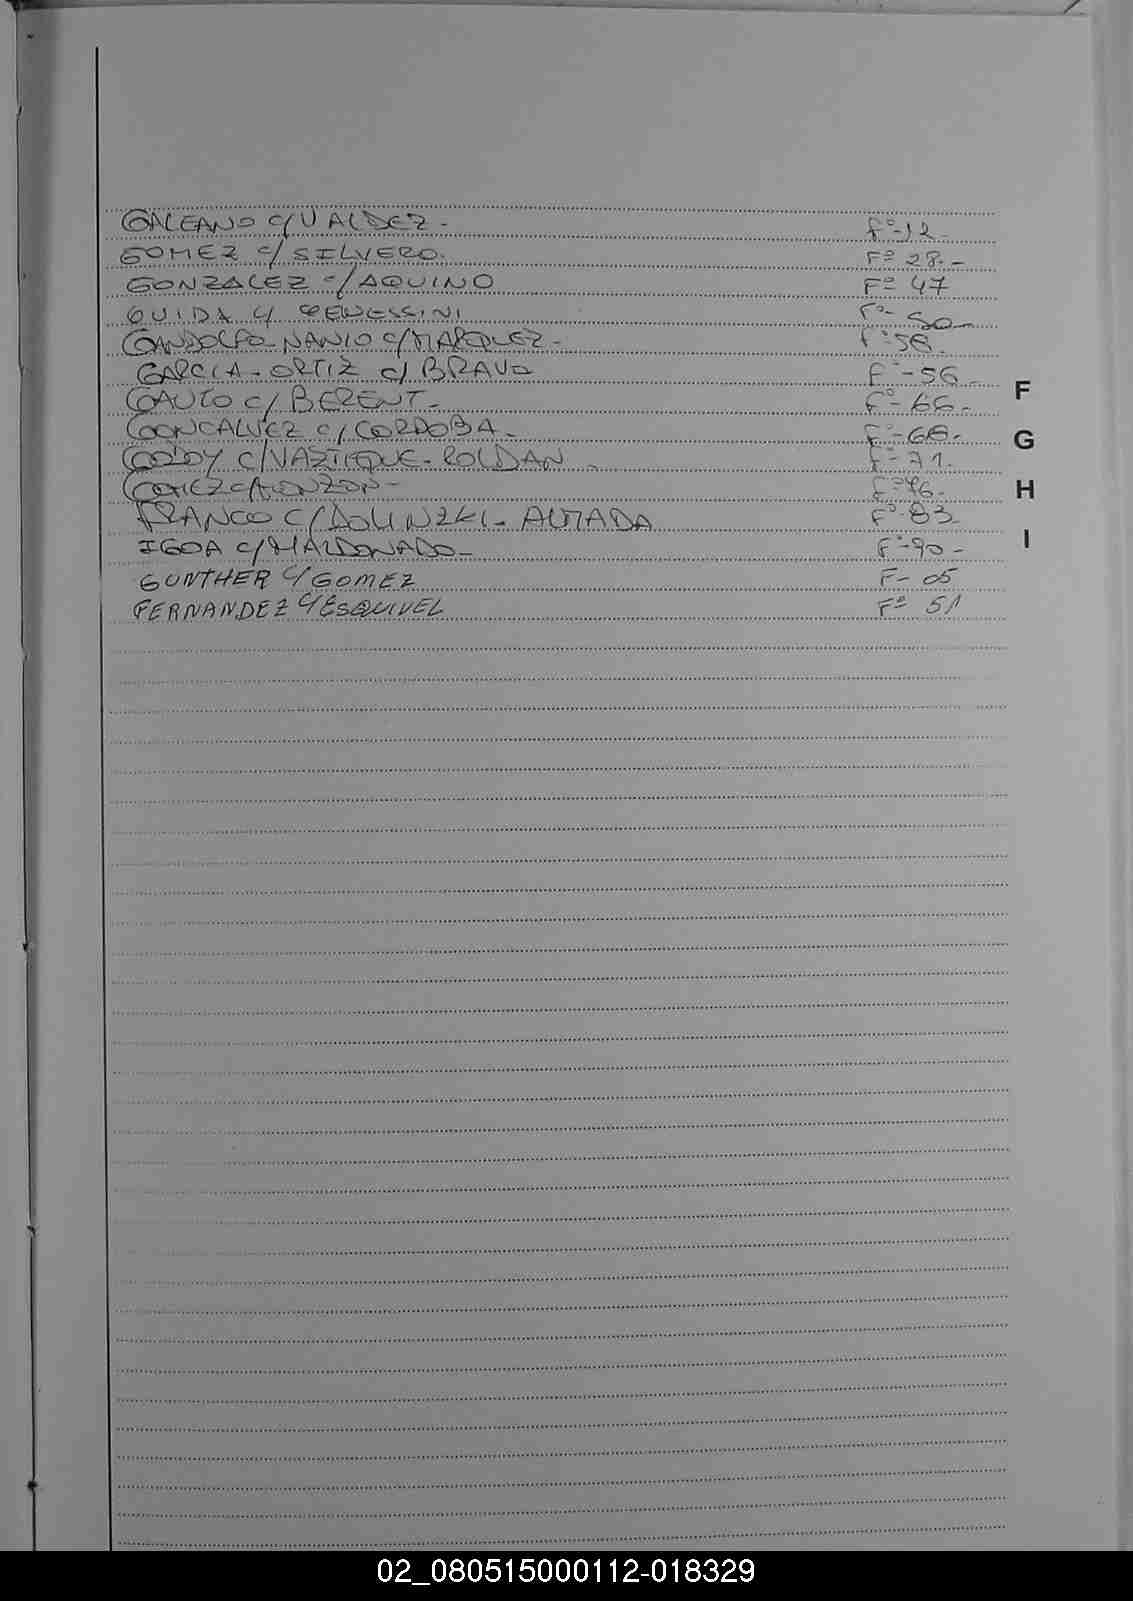 GALEANO c/ VALDEZ - Fº-12-
GOMEZ c/ SILVERO. Fº 28.-
GONZALEZ c/ AQUINO Fº 47
GUIDA c/ Fº- 50-
GANDOLFO NANIO c/ MARQUEZ - Fº 56.
GARCIA - ORTIZ c/ BRAVO Fº-56-
GAUTO c/ BERENT - Fº-66-
GONCALVEZ c/ CORDOBA - Fº-68-
GODOY c/ - ROLDAN Fº-71.
GOMEZ c/ MONZON - Fº 76-
FRANCO c/ DOLINZKI - ALMADA Fº-83
IGOA c/ MALDONADO - Fº-90-
GUNTHER c/ GOMEZ F- 05
FERNANDEZ c/ ESQUIVEL Fº 51
F
G
H
I
02_080515000112-018329